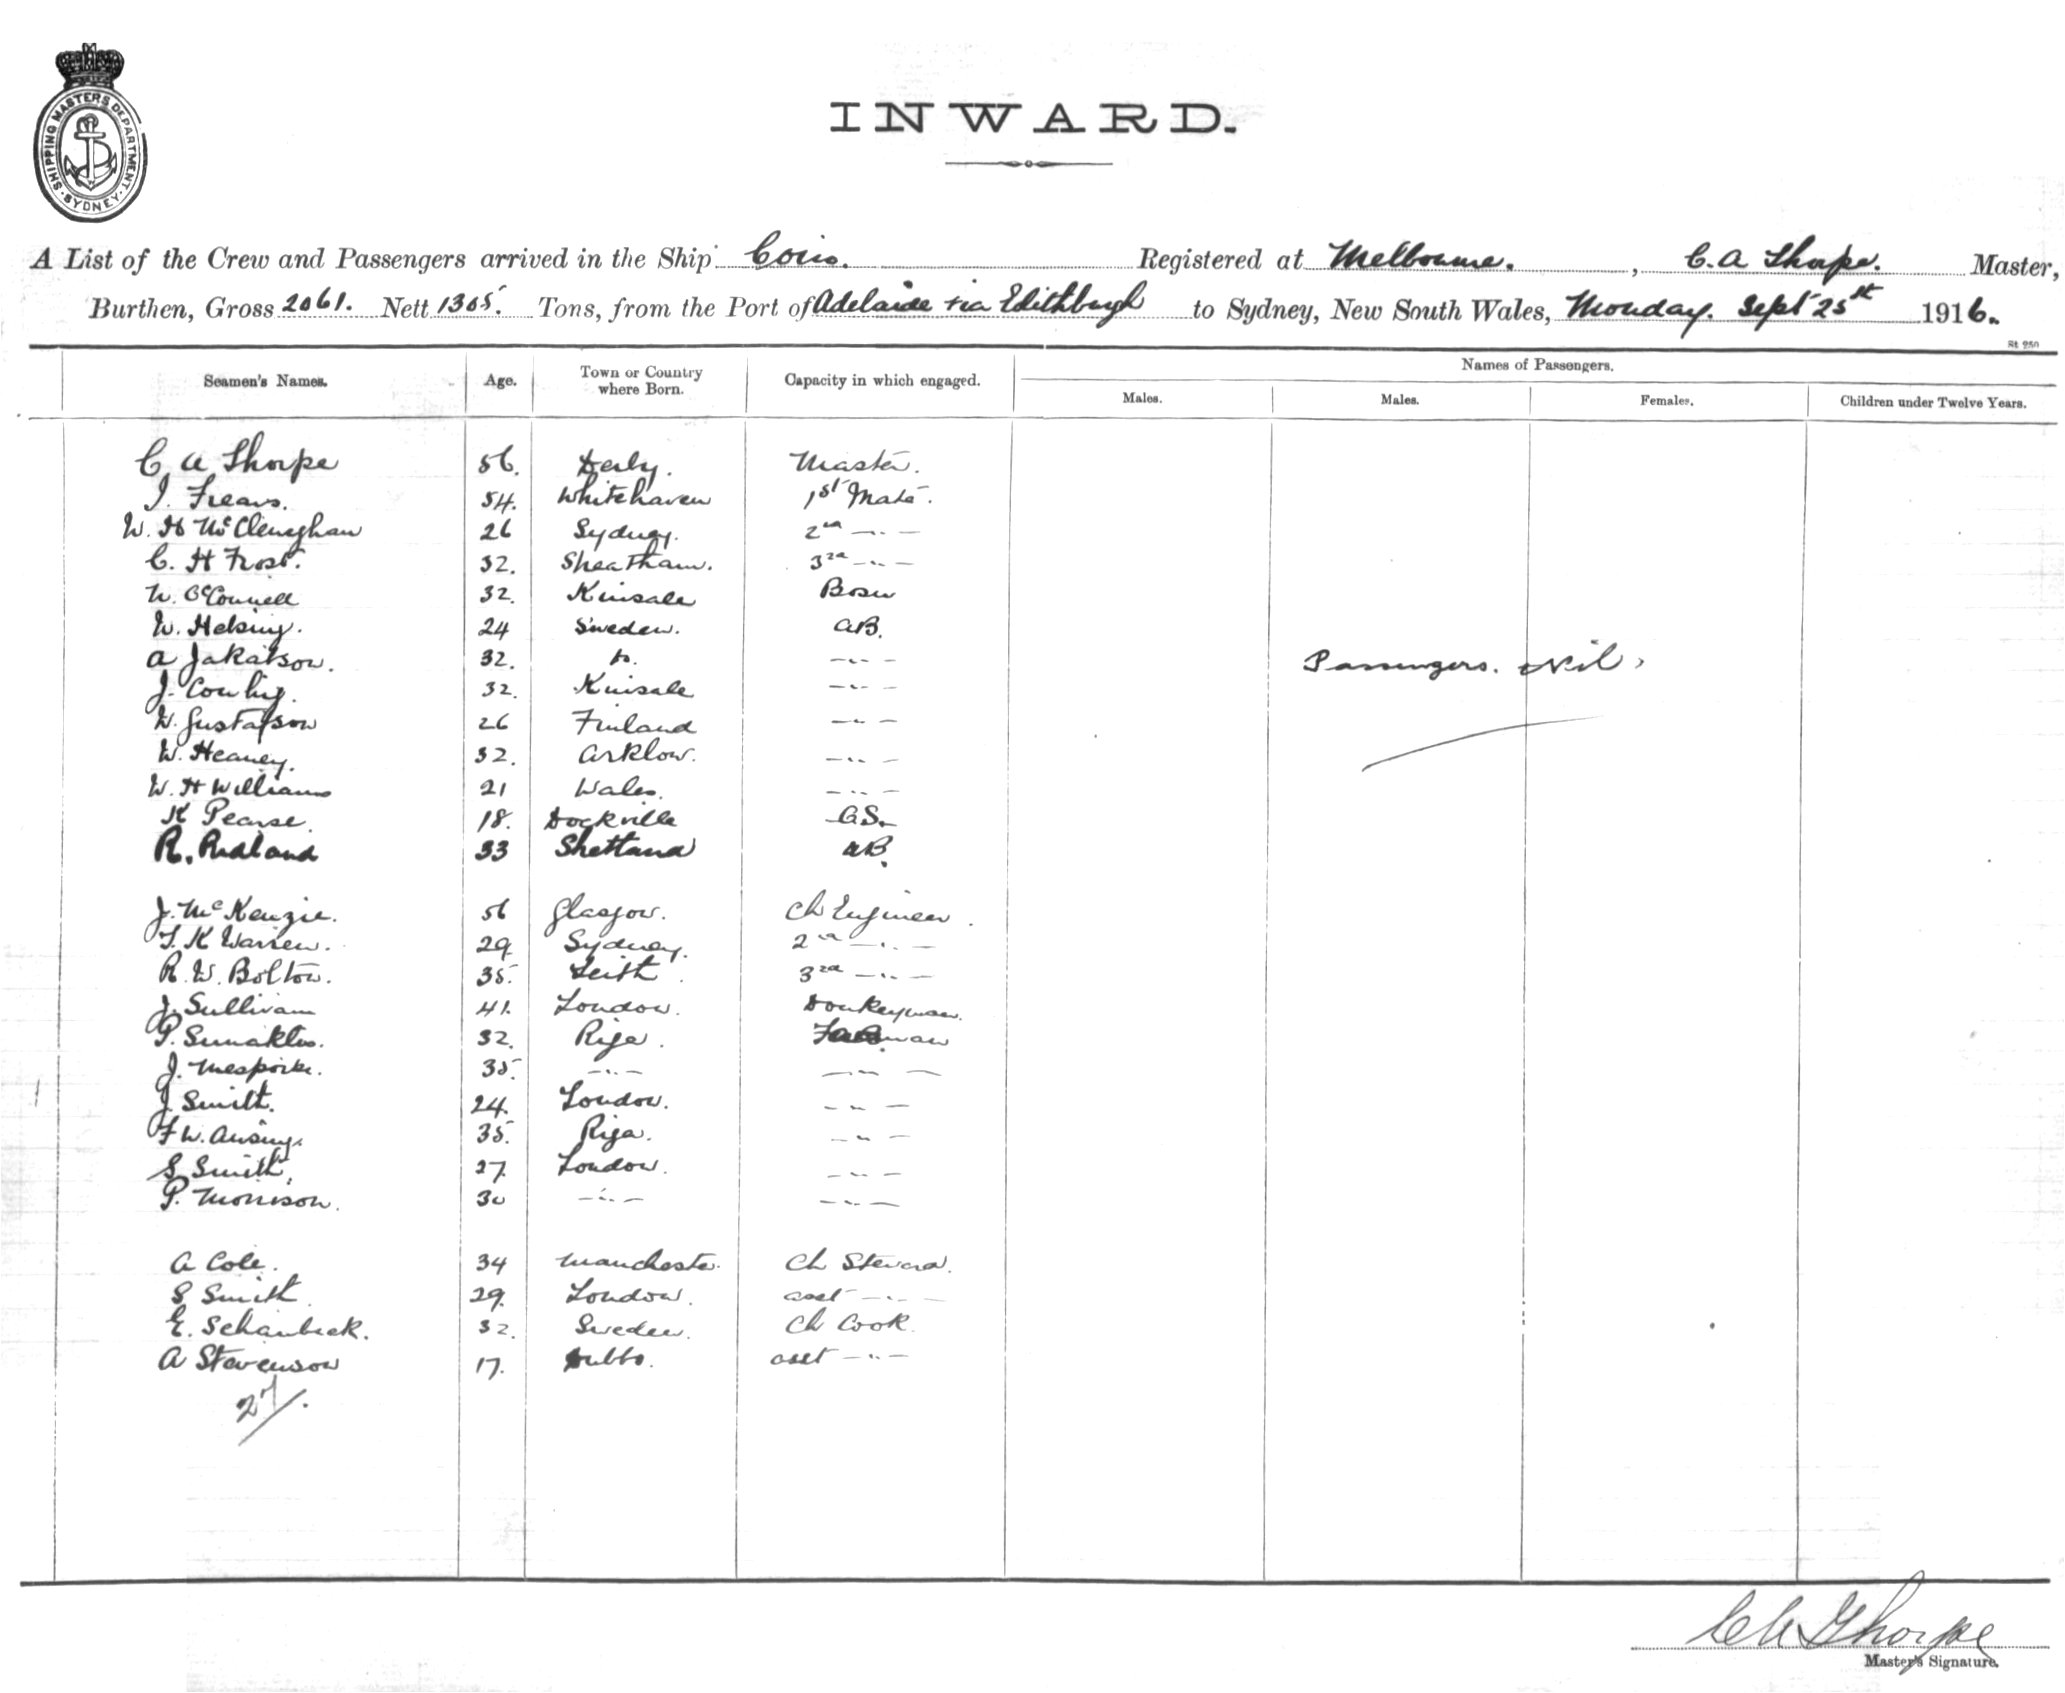 SHIPPING MASTERS DEPARTMENT SYDNEY
INWARD.
A List of the Crew and Passengers arrived in the Ship Corio. Registered at Melbourne. , C. A Thorpe. Master,
Burthen, Gross 2061. Nett 1305. Tons, from the Port of Adelaide via Edithburgh to Sydney, New South Wales, Monday. Sept 25th 1916.
St 250
Seamen's Names. Age. Town or Country where Born. Capacity in which engaged. Names of Passengers.
Males. Males. Females. Children under Twelve Years.
C. A. Thorpe 56. Derby. Master.
J. Frears. 54. Whitehaven 1st Mate.
W. H McClenaghan 26 Sydney. 2nd —..—
C. H Frost. 32. 3rd —..—
W. O'Connell 32. Kinsale Bosn
W. Helsing. 24 Sweden. AB.
A Jakatson. 32. Do. —..—
J. Cowhig. 32. Kinsale —..—
Passengers. Nil,
W. Gustafson 26 Finland —..—
W. Heaney. 32. Arklow. —..—
W. H Williams 21 Wales. —..—
K Pearse. 18. Dockville OS.
R. Ridland 33 Shetland AB.
J. McKenzie. 56 Glasgow. Ch Engineer.
T. K Warren. 29 Sydney. 2nd —..—
R. W. Bolton. 35. Leith. 3rd —..—
J. Sullivan 41. London. Donkeyman.
P. 32. Riga. Fireman
J. 35. —..— —..—
J. Smith. 24. London. —..—
F W. Ausing. 35. Riga. —..—
S Smith. 27. London. —..—
P. Morrison. 30 —..— —..—
A Cole. 34 Manchester. Ch Steward.
S Smith 29. London. asst —..—
E. Schanbeck. 32. Sweden. Ch Cook.
A Stevenson 17. Dubbo. asst —..—
27/.
C A Thorpe
Master's Signature.